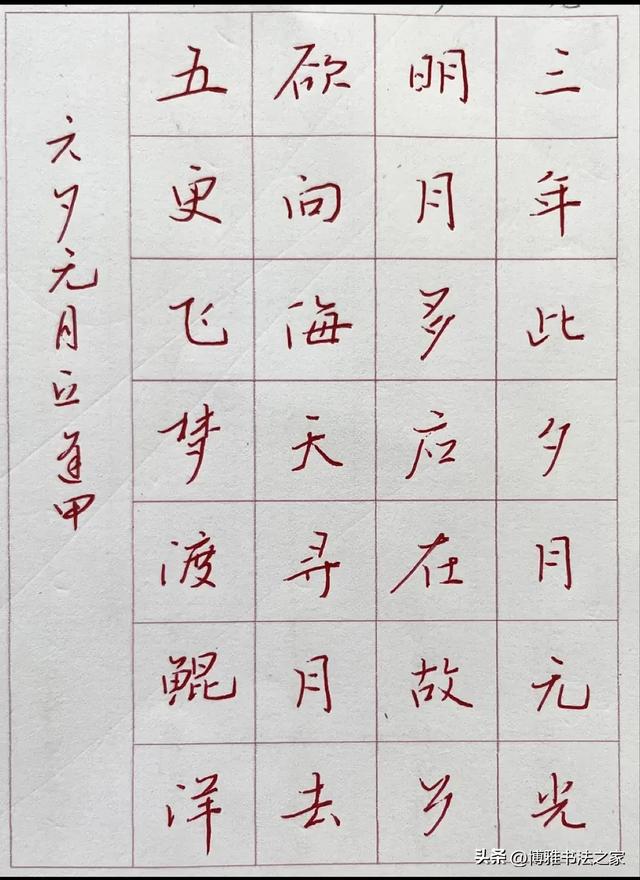 三年此夕月无光
明月多应在故乡
欲向海天寻月去
五更飞梦渡鲲洋
元夕无月丘逢甲
头条 @博雅书法之家